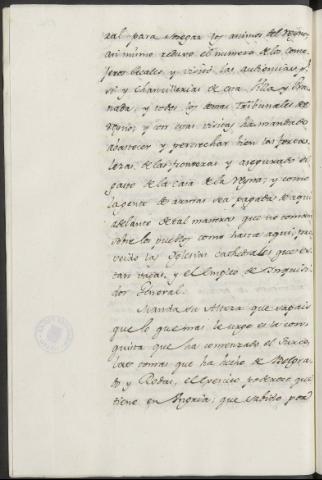 real para sosegar los animos del Reyno,
asi mismo reduxo el numero de los conse-
jeros Reales y visitó las audiencias, y
Chancillerias de esta Villa y Gra-
nada, y todos los demas Tribunales del
Reyno; y con estas visitas ha mandado
abastecer y pertrechar bien las forta-
lezas de las fronteras y asegurado el
gasto de la casa de la Reyna; y como
la gente de armas sea pagada de aqui
adelante de tal manera que no coman
sobre los pueblos como hasta aqui, pro-
veido las Iglesias cathedrales que es-
tan vacas, y el Empleo de Inquisi-
dor General.
Manda su Alteza que sepais
que lo que mas le urge es la con-
quista que ha comenzado el Turco,
las tomas que ha hecho de Belgra-
do y Rodas, el exercito poderoso que
tiene en Ungria; que sabido por